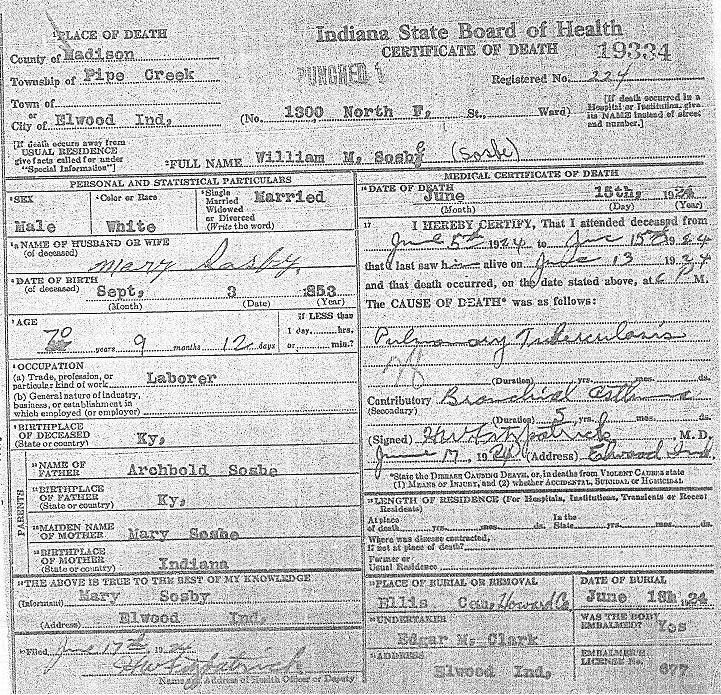 PLACE OF DEATH
County of Madison
Township of Pipe Creek
Town of
or
City of Elwood Ind,
Indiana State Board of Health
CERTIFICATE OF DEATH
19334
PUNCHED 1
Registered No. 224
(No. 1300 North F, St., Ward)
[If death occurred in a Hospital or Institution, give its NAME instead of street and number.]
[If death occurs away from USUAL RESIDENCE give facts called for under "Special Information"]
FULL NAME William M. Sosby (Sosbe)
PERSONAL AND STATISTICAL PARTICULARS
SEX
Male
Color or Race
White
Single
Married
Widowed
or Divorced
(Write the word)
Married
NAME OF HUSBAND OR WIFE
(of deceased)
Mary Sosby,
DATE OF BIRTH
(of deceased)
Sept, 3 1853
(Month) (Date) (Year)
AGE
70 years 9 months 12 days
If LESS than
1 day, hrs.
or min.?
OCCUPATION
(a) Trade, profession, or
particular kind of work Laborer
(b) General nature of industry,
business, or establishment in
which employed (or employer)
BIRTHPLACE
OF DECEASED
(State or country)
Ky,
PARENTS
NAME OF
FATHER
Archbold Sosbe
BIRTHPLACE
OF FATHER
(State or country)
Ky,
MAIDEN NAME
OF MOTHER
Mary Sosbe
BIRTHPLACE
OF MOTHER
(State or country)
Indiana
THE ABOVE IS TRUE TO THE BEST OF MY KNOWLEDGE
(Informant) Mary Sosby
(Address) Elwood Ind,
Filed June 17th 1924
HW Fitzpatrick
Name and Address of Health Officer or Deputy
MEDICAL CERTIFICATE OF DEATH
DATE OF DEATH
June 15th, 1924
(Month) (Day) (Year)
17 I HEREBY CERTIFY, That I attended deceased from
June 5th 1924 to June 15th 1924
that I last saw him alive on June 13 1924
and that death occurred, on the date stated above, at 6 P M.
The CAUSE OF DEATH* was as follows:
Pulmonary Tuberculosis
(Duration) yrs. mos. ds.
Contributory Bronchial Asthma
(Secondary)
(Duration) 5 yrs. mos. ds.
(Signed) HW Fitzpatrick M. D.
June 17 1924 (Address) Elwood Ind.
*State the DISEASE CAUSING DEATH, or, in deaths from VIOLENT CAUSES state
(1) MEANS OF INJURY, and (2) whether ACCIDENTAL, SUICIDAL or HOMICIDAL
LENGTH OF RESIDENCE (For Hospitals, Institutions, Transients or Recent
Residents)
At place
of death yrs. mos. ds.
In the
State yrs. mos. ds.
Where was disease contracted,
If not at place of death?
Former or
Usual Residence
PLACE OF BURIAL OR REMOVAL
Ellis Cem, Howard Co
DATE OF BURIAL
June 18h, 1924
UNDERTAKER
Edgar M. Clark
WAS THE BODY
EMBALMED? Yes
ADDRESS
Elwood Ind,
EMBALMER'S
LICENSE No. 677